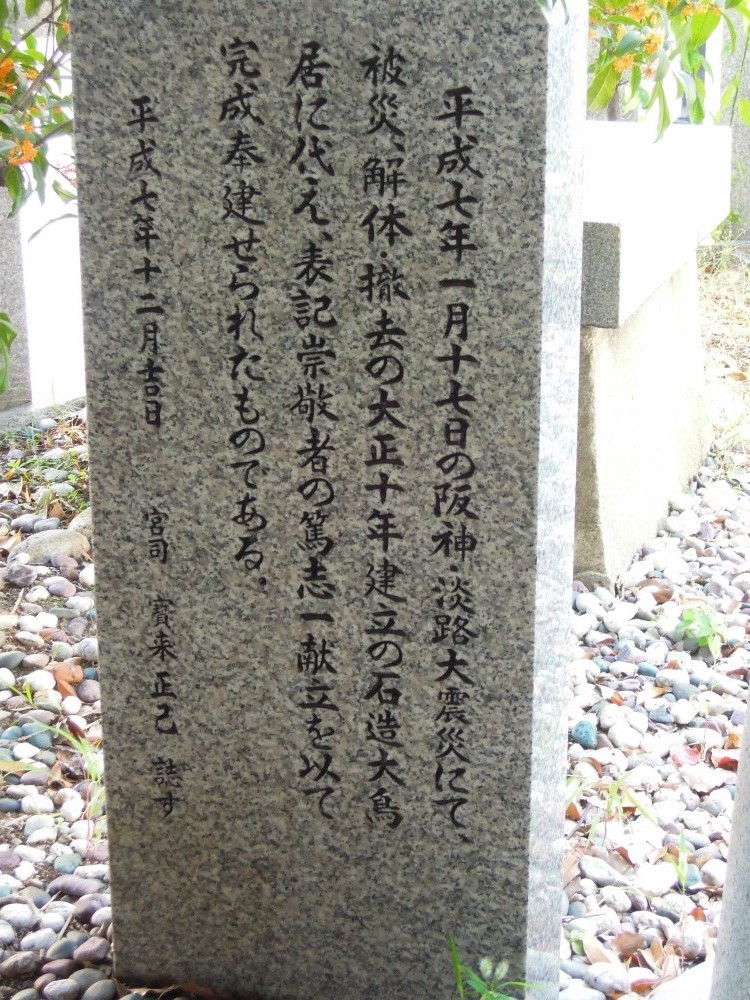 平成七年一月十七日の阪神・淡路大震災にて、
被災、解体・撤去の大正十年建立の石造大鳥
居に代え、表記崇敬者の篤志一献立を以て
完成奉建せられたものである。
平成七年十二月吉日 宮司 寳来正己 誌す